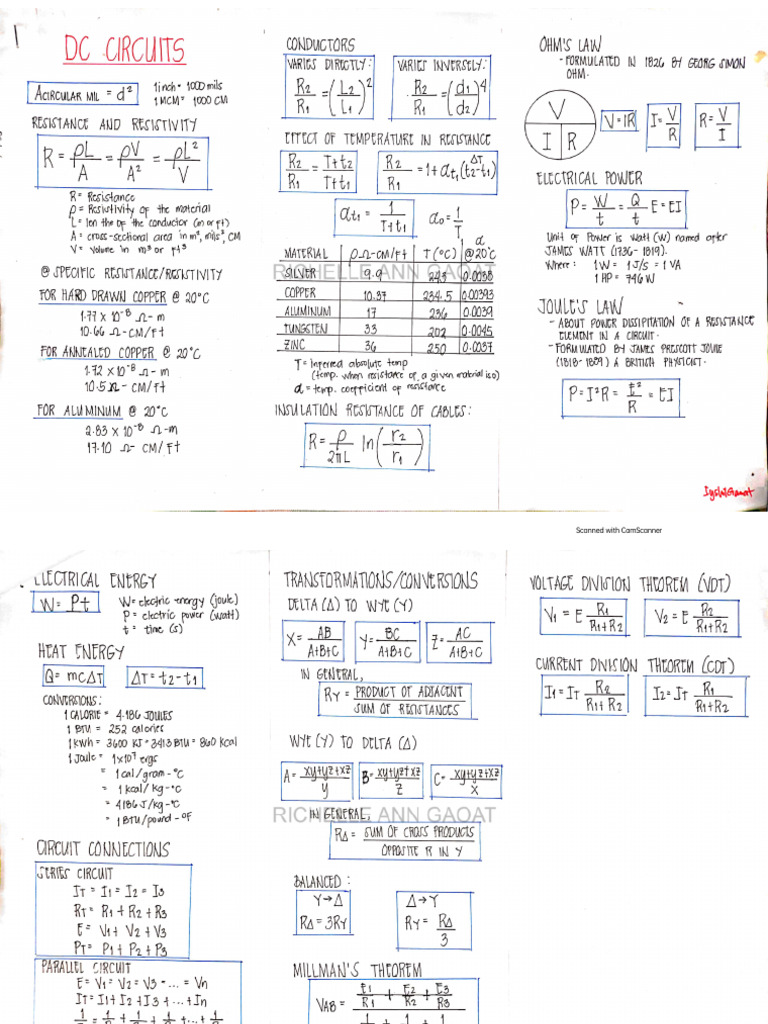 DC CIRCUITS
A CIRCULAR MIL = d²
1 inch = 1000 mils
1 MCM = 1000 CM
RESISTANCE AND RESISTIVITY
R = ρL/A = ρV/A² = ρL²/V
R = Resistance
ρ = Resistivity of the material
L = len tho of the conductor (m or ft)
A = cross-sectional area in m², mils², CM
V = volume in m³ or ft³
@ SPECIFIC RESISTANCE/RESISTIVITY
FOR HARD DRAWN COPPER @ 20°C
1.77 × 10⁻⁸ Ω-m
10.66 Ω-CM/ft
FOR ANNEALED COPPER @ 20°C
1.72 × 10⁻⁸ Ω-m
10.5 Ω-CM/ft
FOR ALUMINUM @ 20°C
2.83 × 10⁻⁸ Ω-m
17.10 Ω-CM/ft
CONDUCTORS
VARIES DIRECTLY: VARIES INVERSELY:
R2/R1 = (L2/L1)² R2/R1 = (d1/d2)⁴
EFFECT OF TEMPERATURE IN RESISTANCE
R2/R1 = T+t2/T+t1 R2/R1 = 1+αt1(t2-t1) ΔT
αt1 = 1/T+t1 α0 = 1/T
MATERIAL ρΩ-CM/ft T(°C) α @20°C
SILVER 9.9 243 0.0038
COPPER 10.37 234.5 0.00393
ALUMINUM 17 236 0.0039
TUNGSTEN 33 202 0.0045
ZINC 36 250 0.0037
RICHELLE ANN GAOAT
T = Inferred absolute temp
(temp. when resistance of a given material is 0)
α = temp. coefficient of resistance
INSULATION RESISTANCE OF CABLES:
R = ρ/2πL ln(r2/r1)
OHM'S LAW
- FORMULATED IN 1826 BY GEORG SIMON
OHM.
V I R
V=IR I=V/R R=V/I
ELECTRICAL POWER
P = W/t = Q/t E = EI
Unit of Power is Watt (W) named after
JAMES WATT (1736-1819).
Where: 1W = 1J/s = 1VA
1HP = 746W
JOULE'S LAW
- ABOUT POWER DISSIPITATION OF A RESISTANCE
ELEMENT IN A CIRCUIT.
- FORMULATED BY JAMES PRESCOTT JOULE
(1818-1889) A BRITISH PHYSICIST.
P = I²R = E²/R = EI
Scanned with CamScanner
ELECTRICAL ENERGY
W = Pt
W = electric energy (joule)
P = electric power (watt)
t = time (s)
HEAT ENERGY
Q = mcΔT ΔT = t2-t1
CONVERSIONS:
1 CALORIE = 4.186 JOULES
1 BTU = 252 calories
1 kWh = 3600 KJ = 3413 BTU = 860 kcal
1 Joule = 1×10⁷ ergs
= 1 cal/gram-°C
= 1 kcal/kg-°C
= 4186 J/kg-°C
= 1 BTU/pound-°F
CIRCUIT CONNECTIONS
SERIES CIRCUIT
IT = I1 = I2 = I3
RT = R1 + R2 + R3
E = V1 + V2 + V3
PT = P1 + P2 + P3
PARALLEL CIRCUIT
E = V1 = V2 = V3 = ... = Vn
IT = I1 + I2 + I3 + ... + In
TRANSFORMATIONS/CONVERSIONS
DELTA (Δ) TO WYE (Y)
X = AB/A+B+C Y = BC/A+B+C Z = AC/A+B+C
IN GENERAL,
RY = PRODUCT OF ADJACENT/SUM OF RESISTANCES
WYE (Y) TO DELTA (Δ)
A = xy+yz+xz/y B = xy+yz+xz/z C = xy+yz+xz/x
RICHELLE ANN GAOAT
IN GENERAL,
RΔ = SUM OF CROSS PRODUCTS/OPPOSITE R IN Y
BALANCED:
Y→Δ Δ→Y
RΔ = 3RY RY = RΔ/3
MILLMAN'S THEOREM
VAB = E1/R1 + E2/R2 + E3/R3
VOLTAGE DIVISION THEOREM (VDT)
V1 = E R1/R1+R2 V2 = E R2/R1+R2
CURRENT DIVISION THEOREM (CDT)
I1 = IT R2/R1+R2 I2 = IT R1/R1+R2